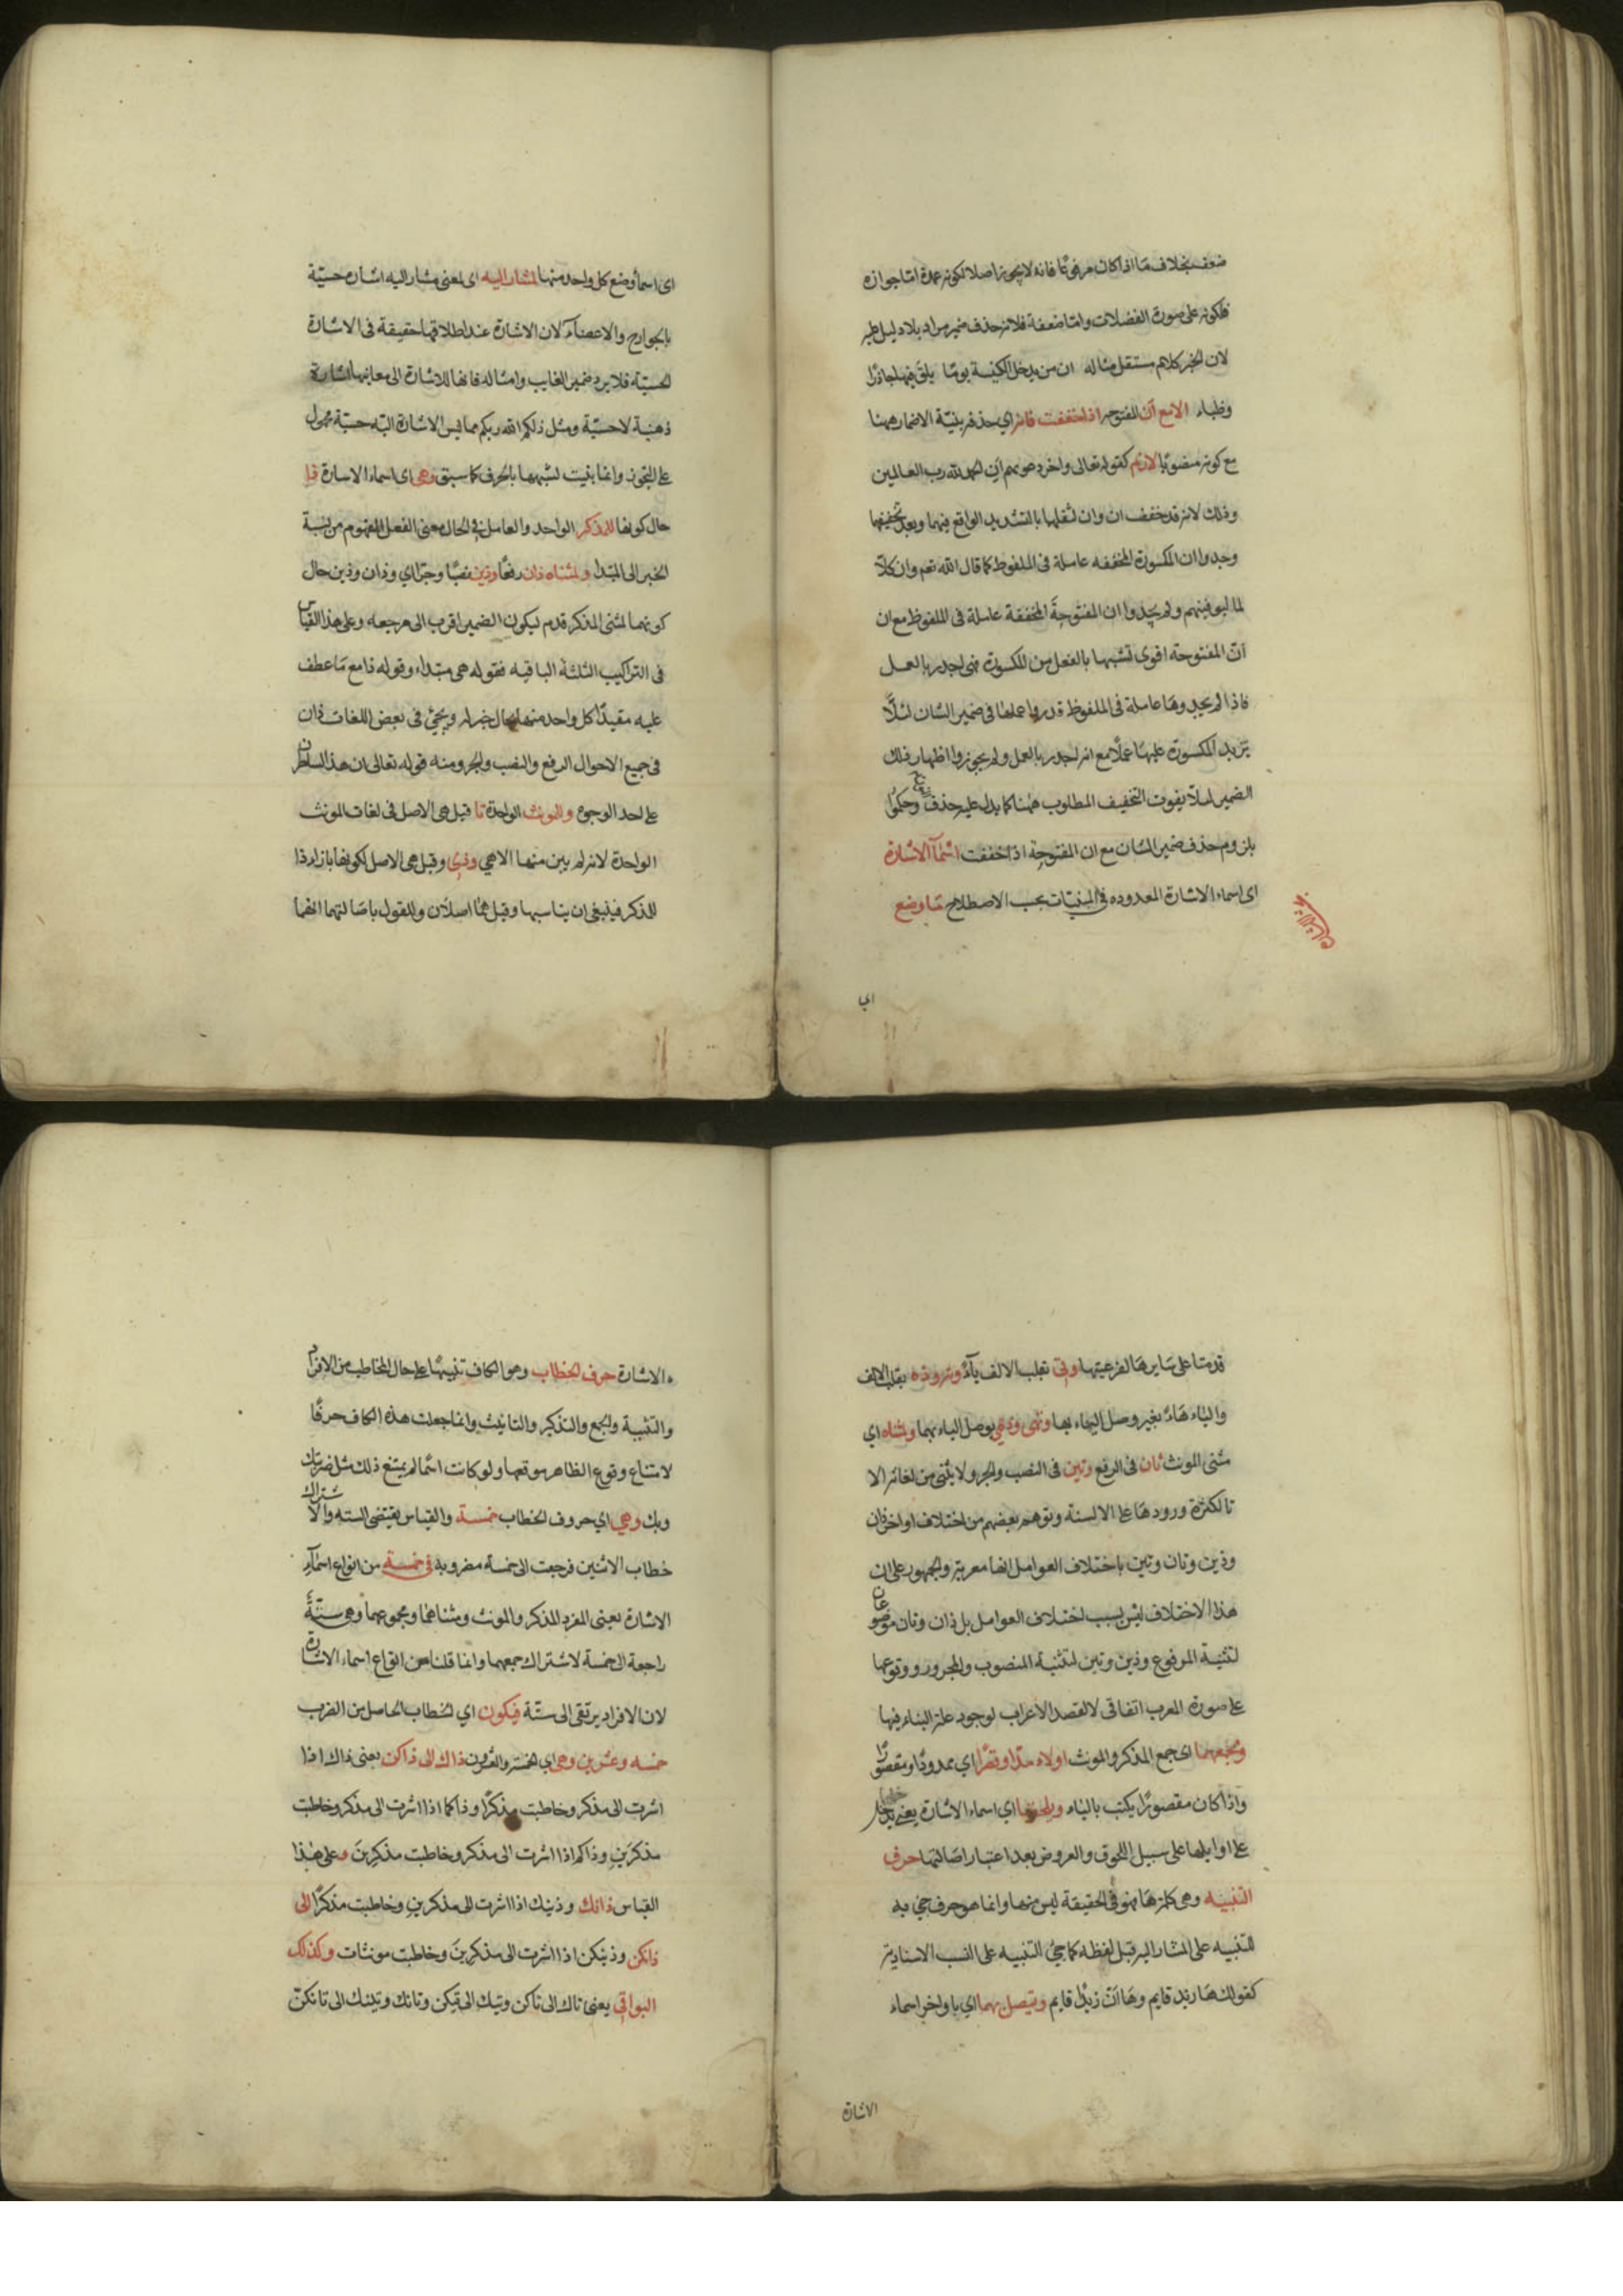 ضعف بخلاف ما اذا كان مرفوعا فانه لا يجوز اصلا لكونه عمدة اما جوازه
فلكونه على صورة الفضلات واما ضعفه فلانه حذف ضمير مراد بلا دليل عليه
لان الخبر كلام مستقل مثاله ان من يدخل الكنيسة يوما يلق فيها جاذرا
وظباء الا مع أن المفتوحه اذا خففت فانه اي حذفه بنية الاضمار ههنا
مع كونه منصوبا لازم كقوله تعالى واخر دعويهم ان الحمد لله رب العالمين
وذلك لانه قد خفف ان وان لثقلها بالتشديد الواقع فيهما وبعد تخفيفها
وجدوا ان المكسورة المخففه عاملة فى الملفوظ كما قال الله تعم وان كلا
لما ليوفينهم ولم يجدوا ان المفتوحة المخففة عاملة فى الملفوظ مع ان
ان المفتوحة اقوى تشبها بالفعل من المكسورة فهى اجدر بالعمل
فاذا لم يجدوها عاملة فى الملفوظ قدروا عملها فى ضمير الشان لئلا
يزيد المكسورة عليها عملا مع انه اجدر بالعمل ولم يجوزوا اظهار ذلك
الضمير لئلا يفوت التخفيف المطلوب ههنا كما يدل عليه حذف وحكموا
بلزوم حذف ضمير الشان مع ان المفتوحة اذا خففت اسماء الاشارة
اى اسماء الاشارة المعدوده في المبنيات بحسب الاصطلاح ما وضع
اى
اى اسما وضع كل واحد منها لمشار اليه اى لمعنى مشار اليه اشارة حسية
بالجوارح والاعضاء لان الاشارة عند اطلاقها حقيقة فى الاشارة
الحسية فلا يرد ضمير الغايب وامثاله فانها للاشارة الى معانيها اشارة
ذهنية لا حسية ومثل ذلكم الله ربكم مما ليس الاشارة اليه حسية محمول
على التجوز وانما بنيت لشبهها بالحرف كما سبق وهى اى اسماء الاشارة ذا
حال كونها للمذكر الواحد والعامل فى الحال معنى الفعل المفهوم من نسبة
الخبر الى المبتدا ولمثناه ذان رفعا وذين نصبا وجرا اي وذان وذين حال
كونهما لمثنى المذكر قدم ليكون الضمير اقرب الى مرجعه وعلى هذا القياس
فى التراكيب الثلثة الباقيه فقوله هى مبتداء وقوله ذا مع ما عطف
عليه مقيدا كل واحد منها بحال خبره ويجئ فى بعض اللغات ذان
فى جميع الاحوال الرفع والنصب والجر ومنه قوله تعالى ان هذان لساحران
على احد الوجوه وللمونث الواحدة تا قيل هى الاصل فى لغات المونث
الواحدة لانه لم يثن منها الا هي وذى وقيل هى الاصل لكونها بازاء ذا
للمذكر فينبغى ان يناسبها وقيل هما اصلان وللقول باصالتهما انهما
قدمتا على سايرها لفرعيتها وتى بقلب الالف ياء وته وذه بقلب الالف
والياء هاء بغير وصل الياء بها وتهى وذهى بوصل الياء بهما ولمثناه اي
مثنى المونث تان فى الرفع وتين فى النصب والجر ولا يثنى من لغاته الا
تا لكثرة ورودها على الالسنة وتوهم بعضهم من اختلاف اواخر ذان
وذين وتان وتين باختلاف العوامل انها معربة والجمهور على ان
هذا الاختلاف ليس بسبب اختلاف العوامل بل ذان وتان موضوعان
لتثنية المرفوع وذين وتين لتثنية المنصوب والمجرور ووقوعها
على صورة المعرب اتفاقى لا لقصد الاعراب لوجود علة البناء فيها
ولجمعهما اى جمع المذكر والمونث اولاء مدا وقصرا اي ممدودا ومقصورا
واذا كان مقصورا يكتب بالياء ويلحقها اي اسماء الاشارة يعنى يدخل
على اوايلها على سبيل اللحوق والعروض بعد اعتبار اصالتها حرف
التنبيه وهى كلمة ها فهو فى الحقيقة ليس منها وانما هو حرف جئ به
للتنبيه على المشار اليه قبل لفظه كما جئ للتنبيه على النسب الاسنادية
كقولك ها زيد قايم وها ان زيدا قايم ويتصل بها اي باواخر اسماء
الاشارة
الاشارة حرف الخطاب وهو الكاف تنبيها على حال المخاطب من الافراد
والتثنية والجمع والتذكير والتانيث وانما جعلت هذه الكاف حرفا
لامتناع وقوع الظاهر موقعها ولو كانت اسما لم يمتنع ذلك مثل ضربتك
وبك وهي اي حروف الخطاب خمسة والقياس يقتضى الستة والاشتراك
خطاب الاثنين فرجعت الى خمسة مضروبة فى خمسة من انواع اسماء
الاشارة يعنى المفرد المذكر والمونث ومثناهما ومجموعهما وهى ستة
راجعة الى خمسة لاشتراك جمعهما وانما قلنا من انواع اسماء الاشارة
لان الافراد يرتقى الى ستة فيكون اي الخطاب الحاصل من الضرب
خمسه وعشرين وهى اي الخمسة والعشرون ذاك الى ذاكن يعنى ذاك اذا
اشرت الى مذكر وخاطبت مذكرا وذاكما اذا اشرت الى مذكر وخاطبت
مذكرين وذاكم اذا اشرت الى مذكر وخاطبت مذكرين وعلى هذا
القياس ذانك وذينك اذا اشرت الى مذكرين وخاطبت مذكرا الى
ذانكن وذينكن اذا اشرت الى مذكرين وخاطبت مونثات وكذلك
البواقى يعنى تاك الى تاكن وتيك الى تيكن وتانك وتينك الى تانكن